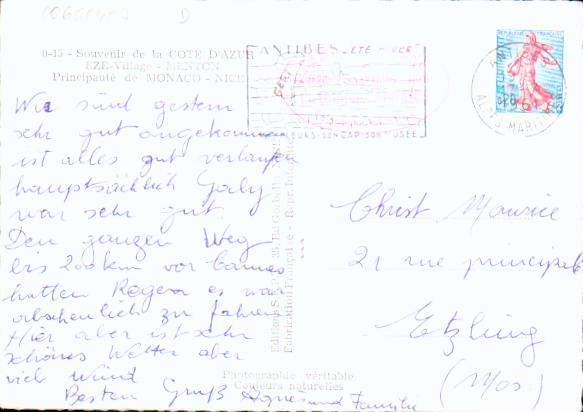 0-15 - Souvenir de la COTE D'AZUR
EZE-Village - MENTON
Principauté de MONACO - NICE
ANTIBES ETE
SON CAP SON MUSEE
Wir sind gestern
sehr gut angekommen
ist alles gut verlaufen
hauptsächlich Gaby
war sehr gut.
Den ganzen Weg
bis 200km vor Cannes
hatten Regen es war
abscheulich zu fahren
Hier aber ist sehr
schönes Wetter aber
viel Wind
Besten Gruß Agnes und Familie
Christ Maurice
21 rue principale
Etzling
(Mos)
Photographie véritable
Couleurs naturelles
Fabrication Française - Repr. Interdite